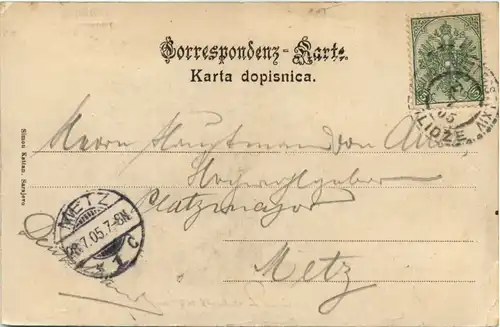 Correspondenz-Karte
Karta dopisnica.
Simon Kattan. Sarajevo
Herrn Hauptmann von
Hochwohlgeboren
Platzmajor
Metz
METZ
7.05.7-8N
* 1 c
LIDŽE
05